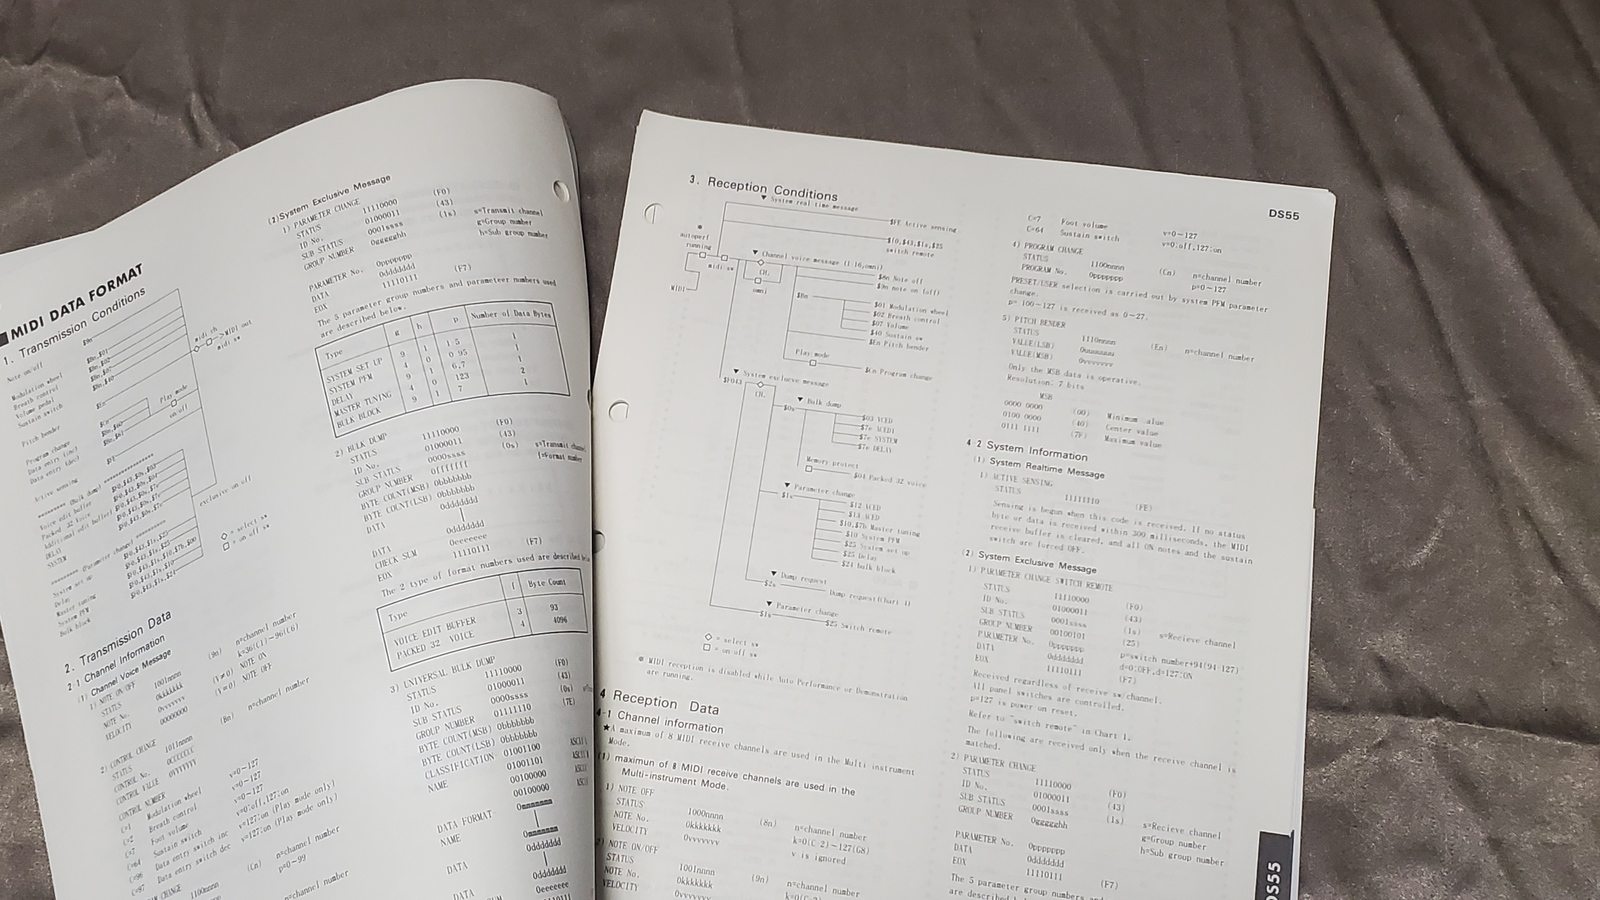 MIDI DATA FORMAT
1. Transmission Conditions
Note on/off
Modulation wheel
Breath control
Volume pedal
Sustain switch
Pitch bender
Program change
Data entry (inc)
Data entry (dec)
Active sensing
midi ch
MIDI out
midi sw
Play mode
on/off
exclusive on off
◇ = select sw
□ = on off sw
Voice edit buffer
Packed 32 Voice
Additional edit buffer
DELAY
SYSTEM
(Parameter change)
System set up
Delay
Master tuning
System PFM
Bulk block
2. Transmission Data
2 1 Channel Information
(1) Channel Voice Message
1) NOTE ON OFF
STATUS 1001nnnn (9n) n=channel number
NOTE No. 0kkkkkkk k=36(C1)~96(C6)
VELOCITY 0vvvvvvv (v≠0) NOTE ON
00000000 (v=0) NOTE OFF
2) CONTROL CHANGE
STATUS 1011nnnn (Bn) n=channel number
CONTROL No. 0ccccccc
CONTROL VALUE 0vvvvvvv
CONTROL NUMBER
C=1 Modulation wheel v=0~127
C=2 Breath control v=0~127
C=7 Foot volume v=0~127
C=64 Sustain switch v=0:off,127:on
C=96 Data entry switch inc v=127:on (Play mode only)
C=97 Data entry switch dec v=127:on (Play mode only)
1100nnnn (Cn) n=channel number
p=0~99
n=channel number
(2)System Exclusive Message
1) PARAMETER CHANGE
STATUS 11110000 (F0)
ID No. 01000011 (43)
SUB STATUS 0001ssss (1s) s=Transmit channel
GROUP NUMBER 0ggggghh g=Group number
h=Sub group number
PARAMETER No. 0ppppppp
DATA 0ddddddd
11110111 (F7)
The 5 parameter group numbers and parameteer numbers used
are described below.
Type g h p Number of Data Bytes
SYSTEM SET UP
SYSTEM PFM
DELAY
MASTER TUNING
BULK BLOCK
2) BULK DUMP
STATUS 11110000 (F0)
ID No. 01000011 (43)
SUB STATUS 0000ssss (0s) s=Transmit channel
GROUP NUMBER 0fffffff f=Format number
BYTE COUNT(MSB) 0bbbbbbb
BYTE COUNT(LSB) 0bbbbbbb
DATA 0ddddddd
DATA 0ddddddd
CHECK SUM 0eeeeeee
EOX 11110111 (F7)
The 2 type of format numbers used are described
Type f Byte Count
VOICE EDIT BUFFER 3 93
PACKED 32 VOICE 4 4096
3) UNIVERSAL BULK DUMP
STATUS 11110000 (F0)
ID No. 01000011 (43)
SUB STATUS 0000ssss (0s)
GROUP NUMBER 01111110 (7E)
BYTE COUNT(MSB) 0bbbbbbb
BYTE COUNT(LSB) 0bbbbbbb
CLASSIFICATION 01001100
NAME 01001101
00100000
00100000
DATA FORMAT 0mmmmmmm
NAME 0mmmmmmm
DATA 0ddddddd
DATA 0ddddddd
0eeeeeee
3. Reception Conditions
DS55
▼ System real time message
$FE Active sensing
$10,$43,$1s,$25
switch remote
※
autoperf
running
midi sw
MIDI
▼ Channel voice message (1-16,omni)
CH.
omni
$8n Note off
$9n note on (off)
$Bn
$01 Modulation wheel
$02 Breath control
$07 Volume
$40 Sustain sw
$En Pitch bender
Play mode
$Cn Program change
▼ System exclurve message
$F043
CH.
▼ Bulk dump
$0s
$03 VCED
$7e ACED1
$7e SYSTEM
$7e DELAY
Memory protect
$04 Packed 32 voice
▼ Parameter change
$1s
$12 VCED
$13 ACED
$10,$7b Master tuning
$10 System PFM
$25 System set up
$25 Delay
$24 bulk block
▼ Dump request
$2s
Dump request(Chart 4)
▼ Parameter change
$1s
$25 Switch remote
◇ = select sw
□ = on off sw
※ MIDI reception is disabled while Auto Performance or Demonstration
are running.
4 Reception Data
4-1 Channel information
★A maximum of 8 MIDI receive channels are used in the Multi instrument
Mode.
(1) maximun of 8 MIDI receive channels are used in the
Multi-instrument Mode.
1) NOTE OFF
STATUS 1000nnnn (8n) n=channel number
NOTE No. 0kkkkkkk k=0(C-2)~127(G8)
VELOCITY 0vvvvvvv v is ignored
2) NOTE ON/OFF
STATUS 1001nnnn (9n) n=channel number
NOTE No. 0kkkkkkk
VELOCITY 0vvvvvvv
C=7 Foot volume v=0~127
C=64 Sustain switch v=0:off,127:on
4) PROGRAM CHANGE
STATUS 1100nnnn (Cn) n=channel number
PROGRAM No. 0ppppppp p=0~127
PRESET/USER selection is carried out by system PFM parameter
change.
p= 100~127 is received as 0~27.
5) PITCH BENDER
STATUS 1110nnnn (En) n=channel number
VALUE(LSB) 0uuuuuuu
VALUE(MSB) 0vvvvvvv
Only the MSB data is operative.
Resolution: 7 bits
MSB
0000 0000 (00) Minimum value
0100 0000 (40) Center value
0111 1111 (7F) Maximum value
4 2 System Information
(1) System Realtime Message
1) ACTIVE SENSING
STATUS 11111110 (FE)
Sensing is begun when this code is received. If no status
byte or data is received within 300 milliseconds, the MIDI
receive buffer is cleared, and all ON notes and the sustain
switch are forced OFF.
(2) System Exclusive Message
1) PARAMETER CHANGE SWITCH REMOTE
STATUS 11110000 (F0)
ID No. 01000011 (43)
SUB STATUS 0001ssss (1s) s=Recieve channel
GROUP NUMBER 00100101 (25)
PARAMETER No. 0ppppppp p=switch number+94(94-127)
DATA 0ddddddd d=0:OFF,d=127:ON
EOX 11110111 (F7)
Received regardless of receive sw/channel.
All panel switches are controlled.
p=127 is power on reset.
Refer to "switch remote" in Chart 1.
The following are received only when the receive channel is
matched.
2) PARAMETER CHANGE
STATUS 11110000 (F0)
ID No. 01000011 (43)
SUB STATUS 0001ssss (1s) s=Recieve channel
GROUP NUMBER 0ggggghh g=Group number
h=Sub group number
PARAMETER No. 0ppppppp
DATA 0ddddddd
EOX 11110111 (F7)
The 5 parameter group numbers and
DS55